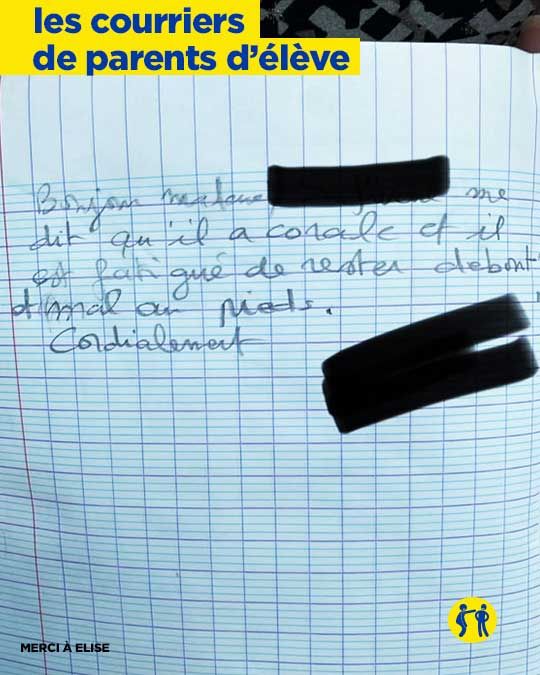 les courriers
de parents d’élève
Bonjour madame, me
dit qu'il a corale et il
est fatigué de rester debout
et mal au pieds.
Cordialement
MERCI À ELISE